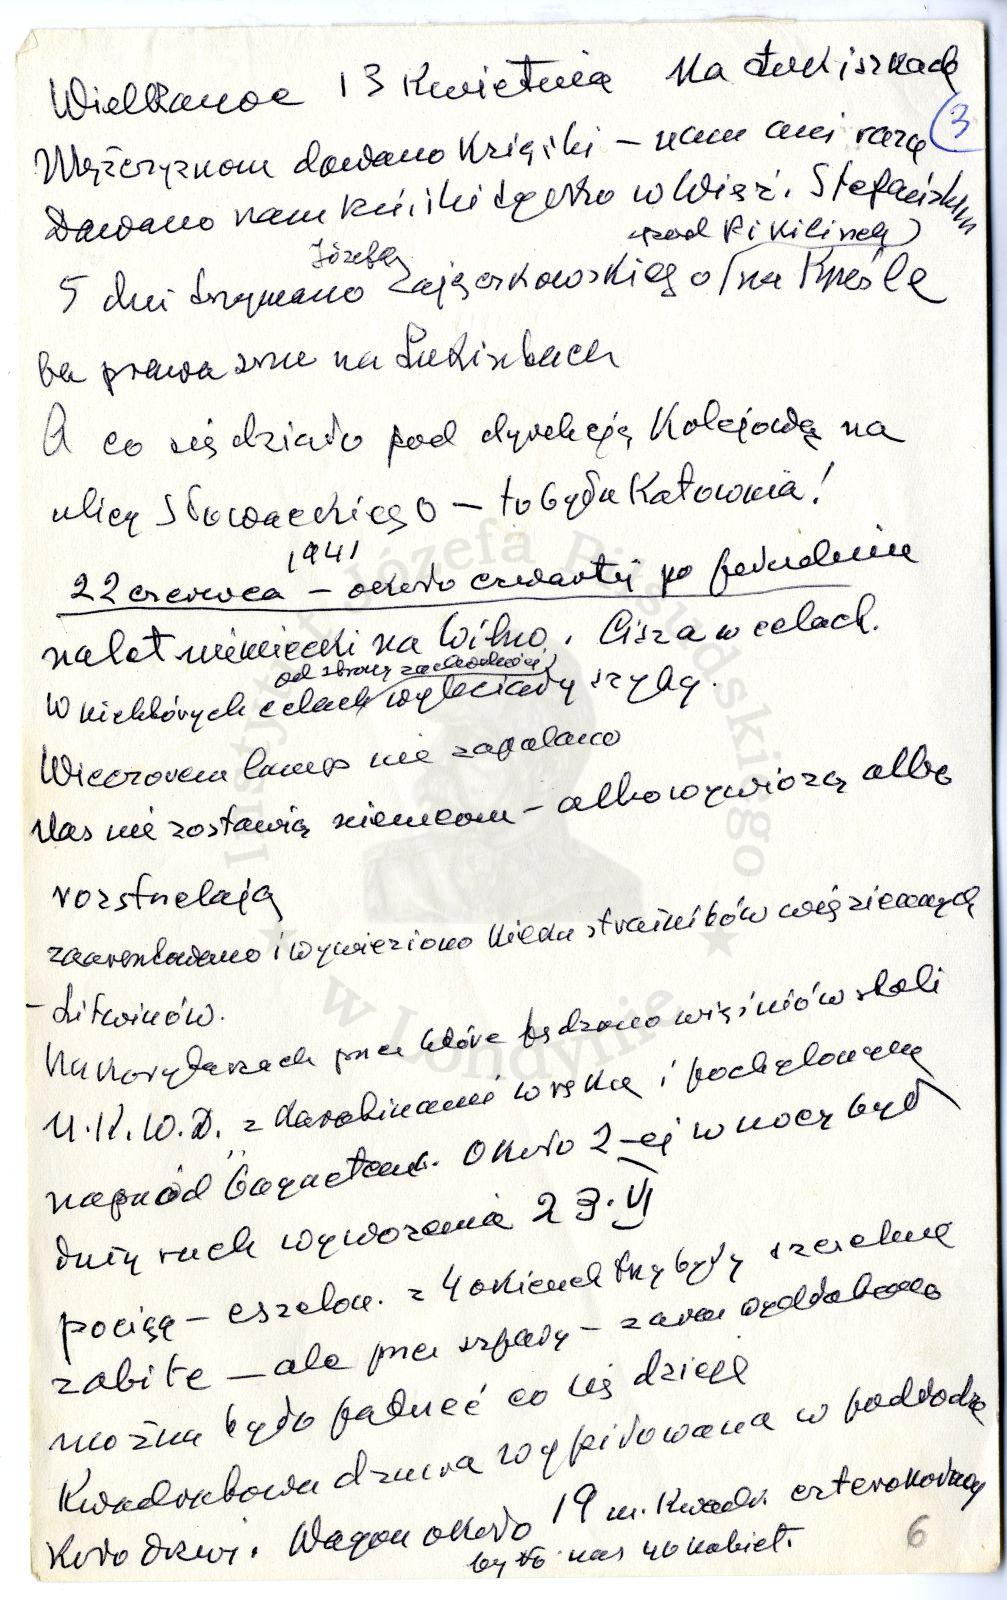 Wielkanoc 13 Kwietnia Na Łukiszkach
(3
Mężczyznom dawano książki – nam ani razu
Dawano nam książki tylko w Więz. Stefańskim
(pod Rikiliszką)
Józefa
5 dni trzymano Zajączkowskiego na Krześle
na Łukiszkach
A co się działo pod dyrekcją Kolejową na
ulicy Słowackiego – to była Katownia!
1941
22 czerwca – około czwartej po południu
nalot niemiecki na Wilno. Cisza w celach.
od strony zachodniej
W niektórych celach wyleciały szyby.
Wieczorem lamp nie zapalano
Nas nie zostawią niemcom – albo wywiozą albo
rozstrzelają
zaaresztowano i wywieziono kilku strażników więziennych
– Litwinów.
Na korytarzach przez które pędzono więźniów stali
N.K.W.D. z karabinami w ręku i pochylonymi
naprzód bagnetami. Około 2-ej w nocy był
duży ruch wywożenia 23.VI
pociąg – eszelon. z 4 okienek trzy były szczelnie
zabite – ale przez szpary – zaraz wydłubano
można było patrzeć co się dzieje
Kwadratowa dziura wypiłowana w podłodze
koło drzwi. Wagon około 19 m. kwadr. czterokołowy
było nas 40 kobiet.
6
Instytut Józefa Piłsudskiego
w Londynie